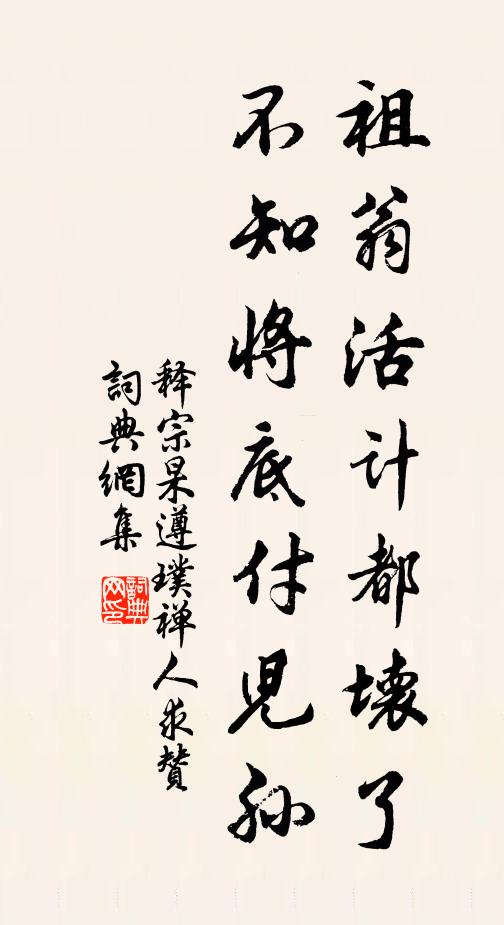 祖翁活计都壞了
不知将底付児孫
释宗杲遵璞禅人求贊
詞典網集
詞典网印